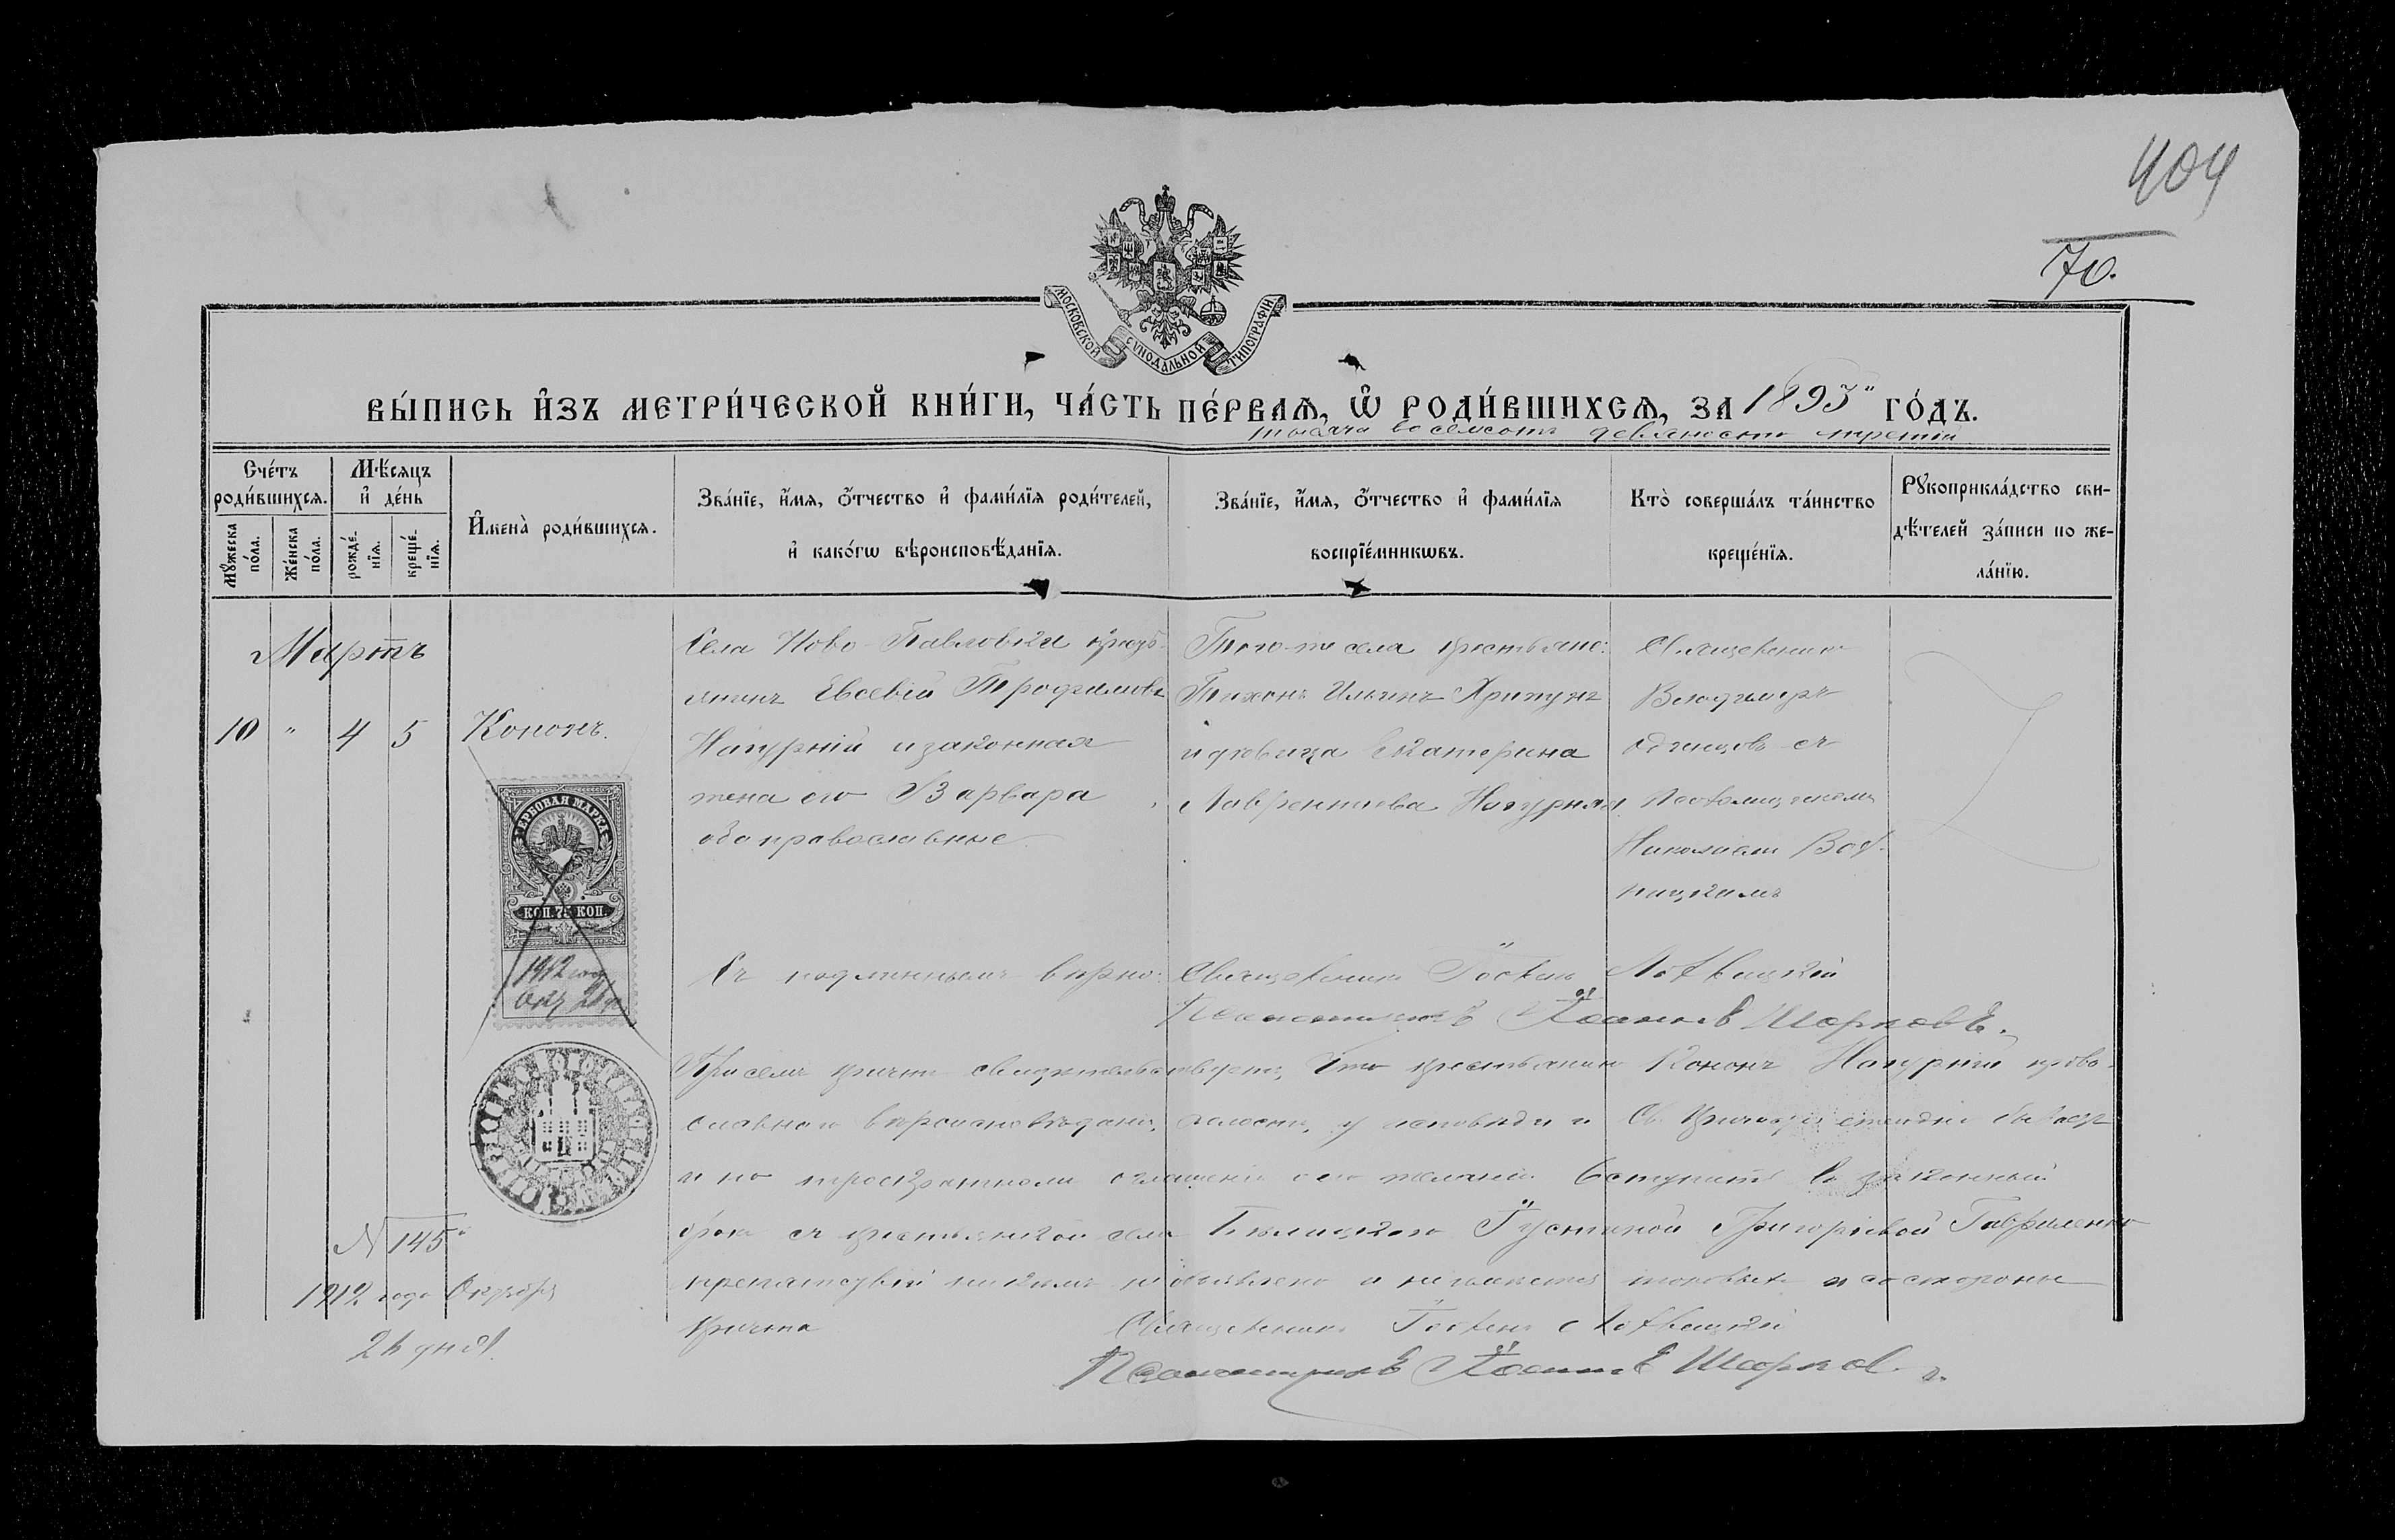 404
70.
МОСКОВСКОЙ СѴНОДАЛЬНОЙ ТИПОГРАФІИ
ВЫ́ПИСЬ И҆ЗЪ МЕТРИ́ЧЕСКОЙ КНИ́ГИ, ЧА́СТЬ ПЕ́РВАѦ, Ѡ҆ РОДИ́ВШИХСѦ, ЗА 1893" ГО́ДЪ.
тысяча восемсотъ девяносто третій
Сче́тъ роди́вшихсѧ.
Мꙋ́жеска по́ла.
Же́нска по́ла.
Мѣ́сѧцъ и҆ де́нь
рожде́нїѧ.
креще́нїѧ.
И҆мена̀ роди́вшихсѧ.
Зва́нїе, и҆́мѧ, ѻ҆́тчество и҆ фами́лїѧ роди́телей,
и҆ како́гѡ вѣроисповѣ́данїѧ.
Зва́нїе, и҆́мѧ, ѻ҆́тчество и҆ фами́лїѧ
воспрїе́мникѡвъ.
Кто̀ соверша́лъ та́инство
креще́нїѧ.
Рꙋкоприкла́дство сви-
дѣ́телей за́писи по же-
ла́нїю.
Мартъ
10 " 4 5 Кононъ.
Села Ново-Павловки крест
янинъ Евсевій Трофимовъ
Нагурній и законная
жена его Варвара
оба православные
Того-же села крестьяне:
Тихонъ Ильинъ Хрипунъ
и вдовица Екатерина
Лаврентиева Нагурная
Священникъ
Владимиръ
Одинцовъ съ
Псаломщикомъ
Николаем
ГЕРБОВАЯ МАРКА
КОП. 75 КОП.
1912 год
Окт
Съ подлиннымъ вѣрно: Священникъ
Псаломщикъ Іоаннъ Шарповъ.
При семъ причтъ свидѣтельствуетъ, что крестьянинъ Кононъ Нагурній право-
славнаго вѣроисповѣданія, холостъ, у исповѣди и Св. Причастія ежегодно бываетъ
и по троекратномъ оглашеніи о его желаніи вступить въ законный
бракъ съ крестьянкой села Іустиной Григоріевой Гавриленко
препятствій никѣмъ не объявлено и не имѣется таковыхъ и со стороны
причта
Священникъ
Псаломщикъ Іоаннъ Шарпов
N 145
1912 года Октября
дня